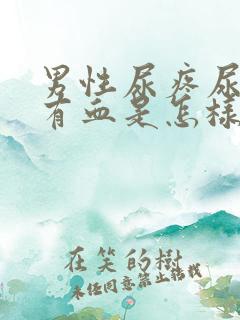 男性尿疼尿
有血是怎樣
在笑的樹
未经同意禁止转载